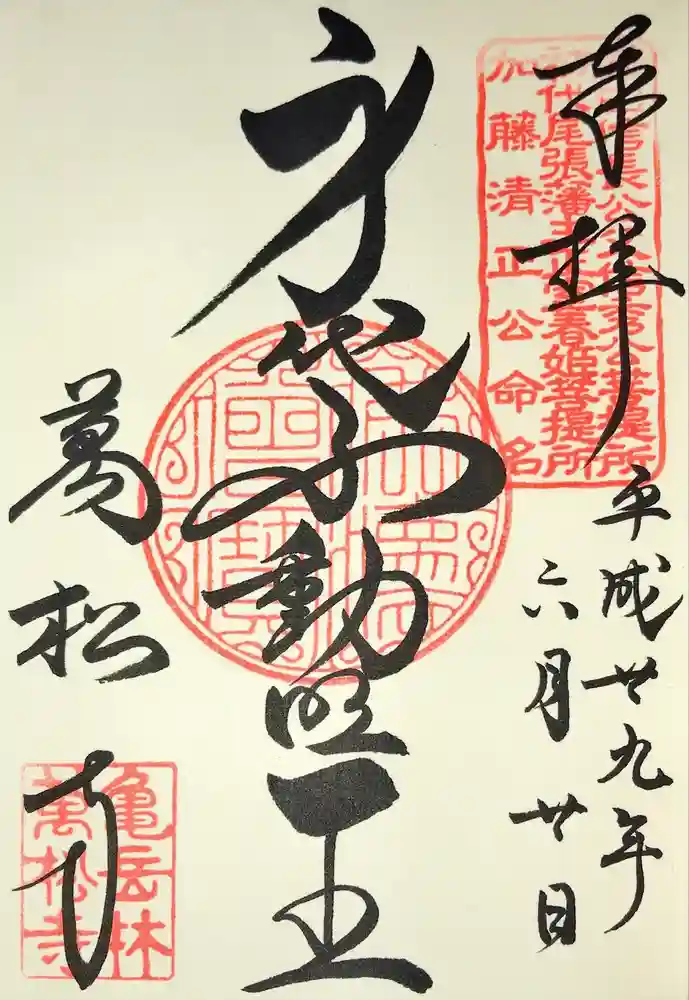 奉拝
平成廿九年
六月廿日
身代不動明王
萬松寺
信長公
代尾張藩主
春姫菩提所
加藤清正公命名
亀岳林
萬松寺